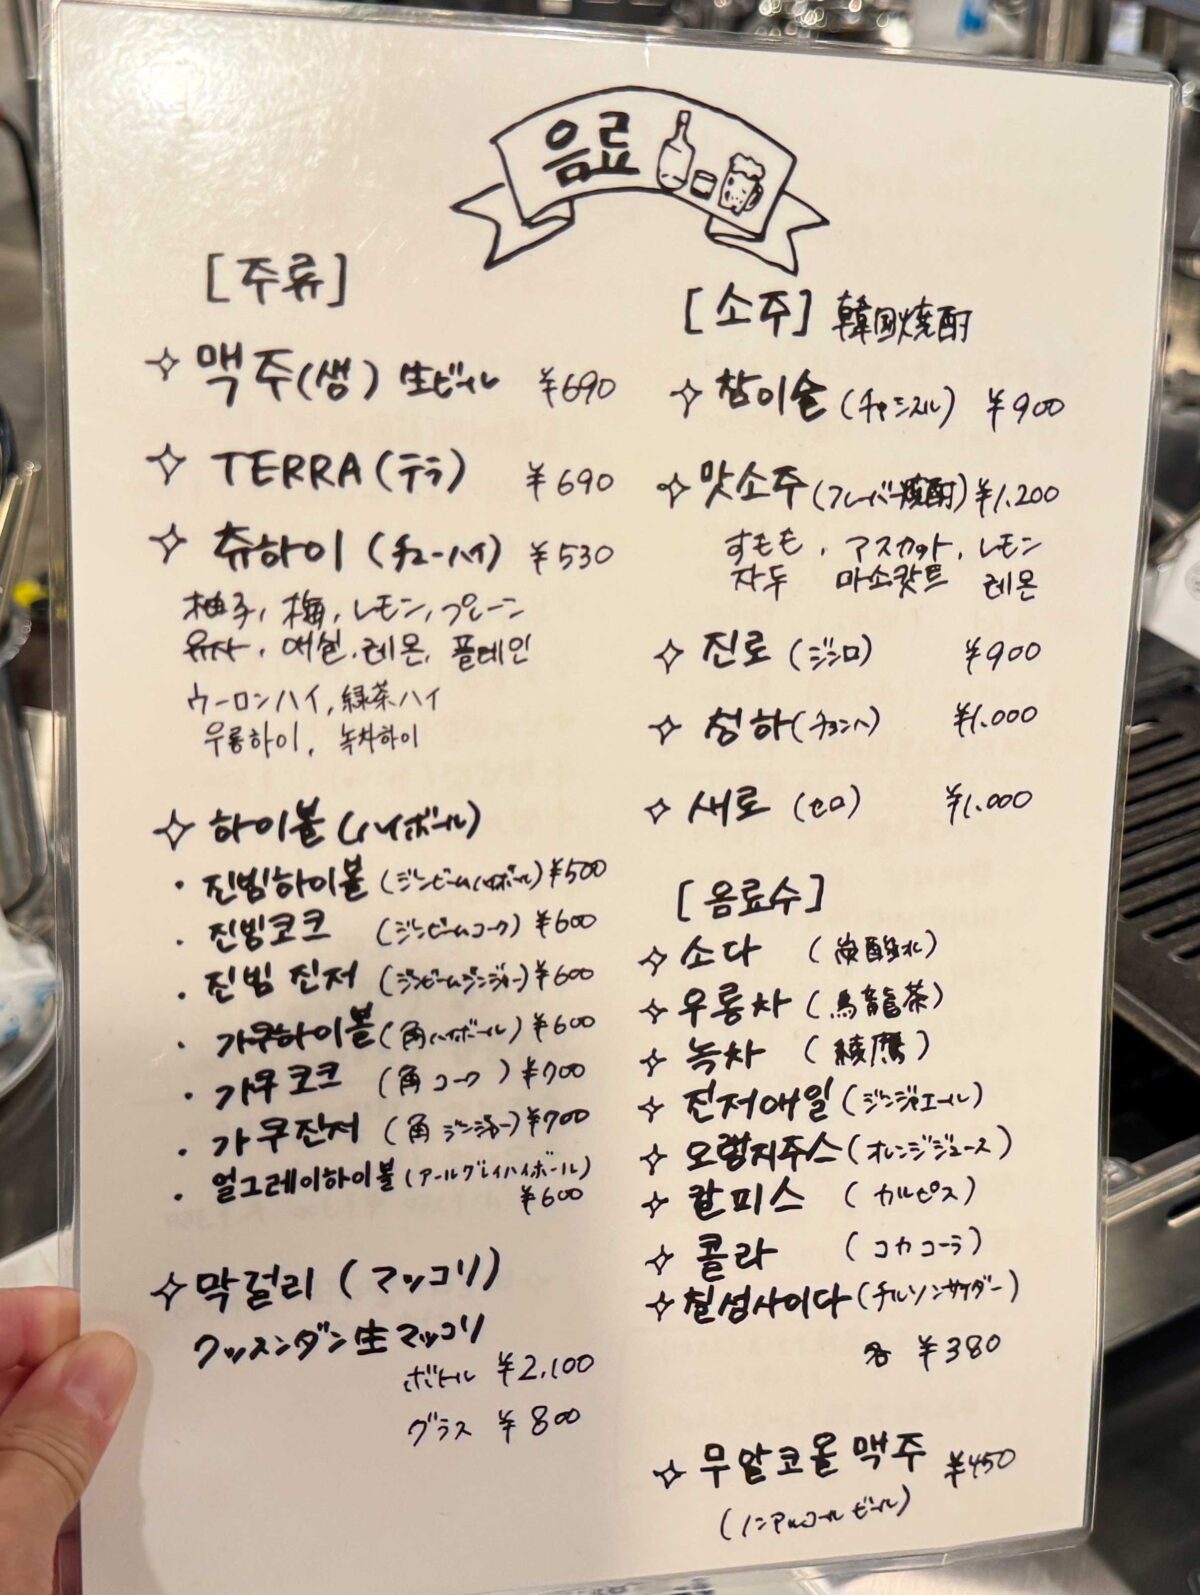 음료
[주류]
✧ 맥주(생) 生ビール ¥690
✧ TERRA(テラ) ¥690
✧ 츄하이(チューハイ) ¥530
柚子, 梅, レモン, プレーン
유자, 매실, 레몬, 플레인
ウーロンハイ, 緑茶ハイ
우롱하이, 녹차하이
✧ 하이볼(ハイボール)
・진빔하이볼(ジンビームハイボール)¥500
・진빔코크 (ジンビームコーク)¥600
・진빔 진저 (ジンビームジンジャー)¥600
・가쿠하이볼(角ハイボール)¥600
・가쿠코크 (角コーク)¥700
・가쿠진저 (角ジンジャー)¥700
・얼그레이하이볼(アールグレイハイボール)
¥600
✧ 막걸리 (マッコリ)
クッスンダン生マッコリ
ボトル ¥2,100
グラス ¥800
[소주] 韓国焼酎
✧ 참이슬(チャミスル) ¥900
✧ 맛소주(フレーバー焼酎)¥1,200
すもも, マスカット, レモン
자두 마스캇트 레몬
✧ 진로(ジンロ) ¥900
✧ 청하(チョンハ) ¥1,000
✧ 새로(セロ) ¥1,000
[음료수]
✧ 소다 (炭酸水)
✧ 우롱차 (烏龍茶)
✧ 녹차 (綾鷹)
✧ 진저애일(ジンジャエール)
✧ 오렌지주스(オレンジジュース)
✧ 칼피스 (カルピス)
✧ 콜라 (コカコーラ)
✧ 칠성사이다(チルソンサイダー)
各 ¥380
✧ 무알코올 맥주 ¥450
(ノンアルコールビール)